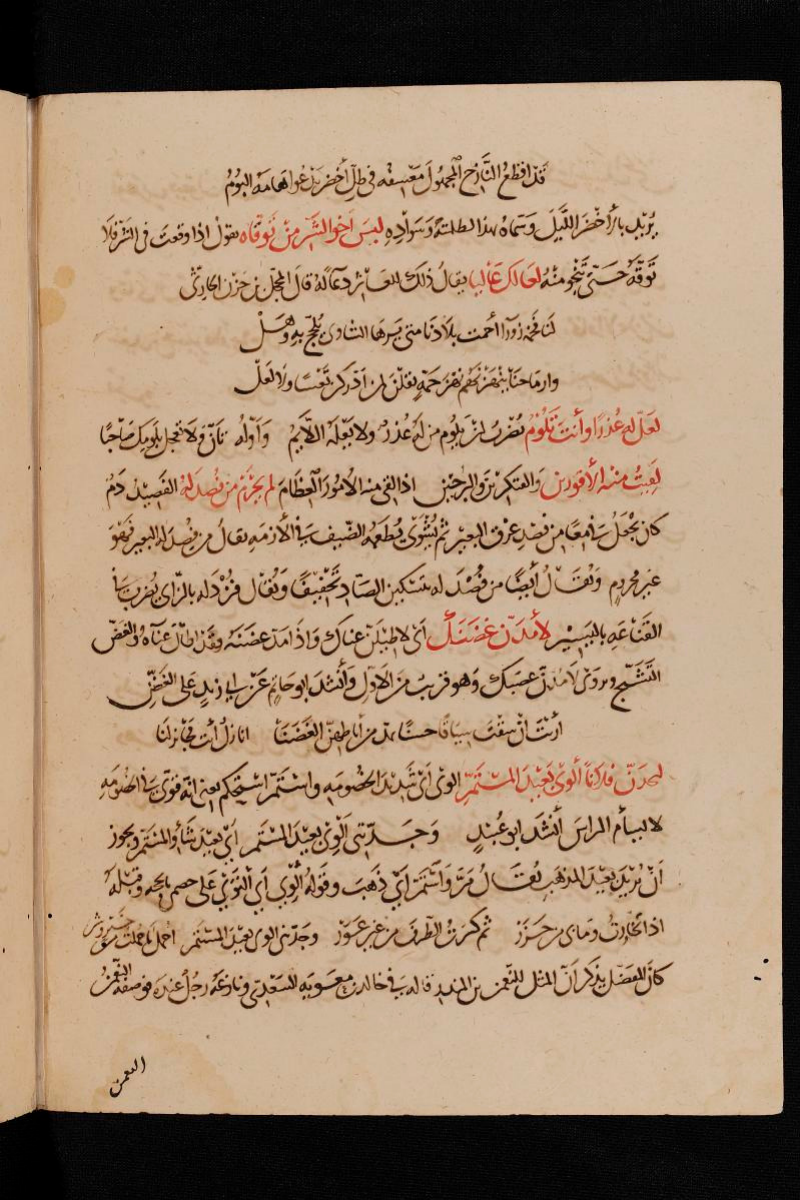 قد اقطع النازح المجهول معسفه في ظل أخضر يدعو هامه البوم
يريد بالأخضر الليل وسماه بهذا لظلمته وسواده ليس أخو الشر من توقاه يقول اذا وقعت في الشر فلا
توقه حتى تنجو منه لعا لك عاليا يقال ذلك للعاثر دعا له قال المخبل بن حزن الحارثي
لنا فخمة زورا أحمت بلادنا متى يرها الشاوي يلجج به وهل
وارماحنا ينهزنهم نهز جمة يقلن لمن أدركن تعسا ولا لعل
لعل له عذرا وأنت تلوم يضرب لمن يلوم من له عذر ولا يعلمه اللايم وأوله تأن ولا تعجل بلومك صاحبا
لقيت منه الأقورين والفتكرين والبرحين اذا لقي منه الأمور العظام لم يحرم من فصد له الفصيد دم
كان يجعل في معا من فصد عرق البعير ثم يشوى يطعمه الضيف في الأزمة يقال من فصد له البعير فهو
غير محروم ويقال أيضا من فصد له بتسكين الصاد تخفيفا ويقال فزد له بالزاي يضرب في
القناعة باليسير لأمدن غضنك أي لاطيلن عناك واذا مد غضنه فقد اطال عناه والغضن
التشنج ويروى لامدن عصبك وهو قريب من الاول وأنشد ابو حاتم عن ابي زيد على الغضن
أرأيت ان سقت سياقا حسنا يمد من اباطهن الغضنا انازل أنت فخابز لنا
لتجدن فلانا ألوى بعيد المستمر الوى أي شديد الخصومة واستمر استحكم يعني انه قوي في الخصومة
لا يسأم المراس أنشد ابو عبيد وجدتني ألوى بعيد المستمر أي بعيد شأو المستمر ويجوز
أن يريد بعيد المذهب يقال مر واستمر أي ذهب وقوله ألوى أي ألتوي على خصمي بالحجة وقبله
اذا تخازرت وما بي من خزر ثم كسرت الطرف من غير عور وجدتني الوى بعيد المستمر احمل ما حملت من خير وشر
كان المفضل يذكر أن المثل للنعمن بن المنذر قاله في خالد بن معوية السعدي ونازعه رجل عنده فوصفه النعمن
النعمن